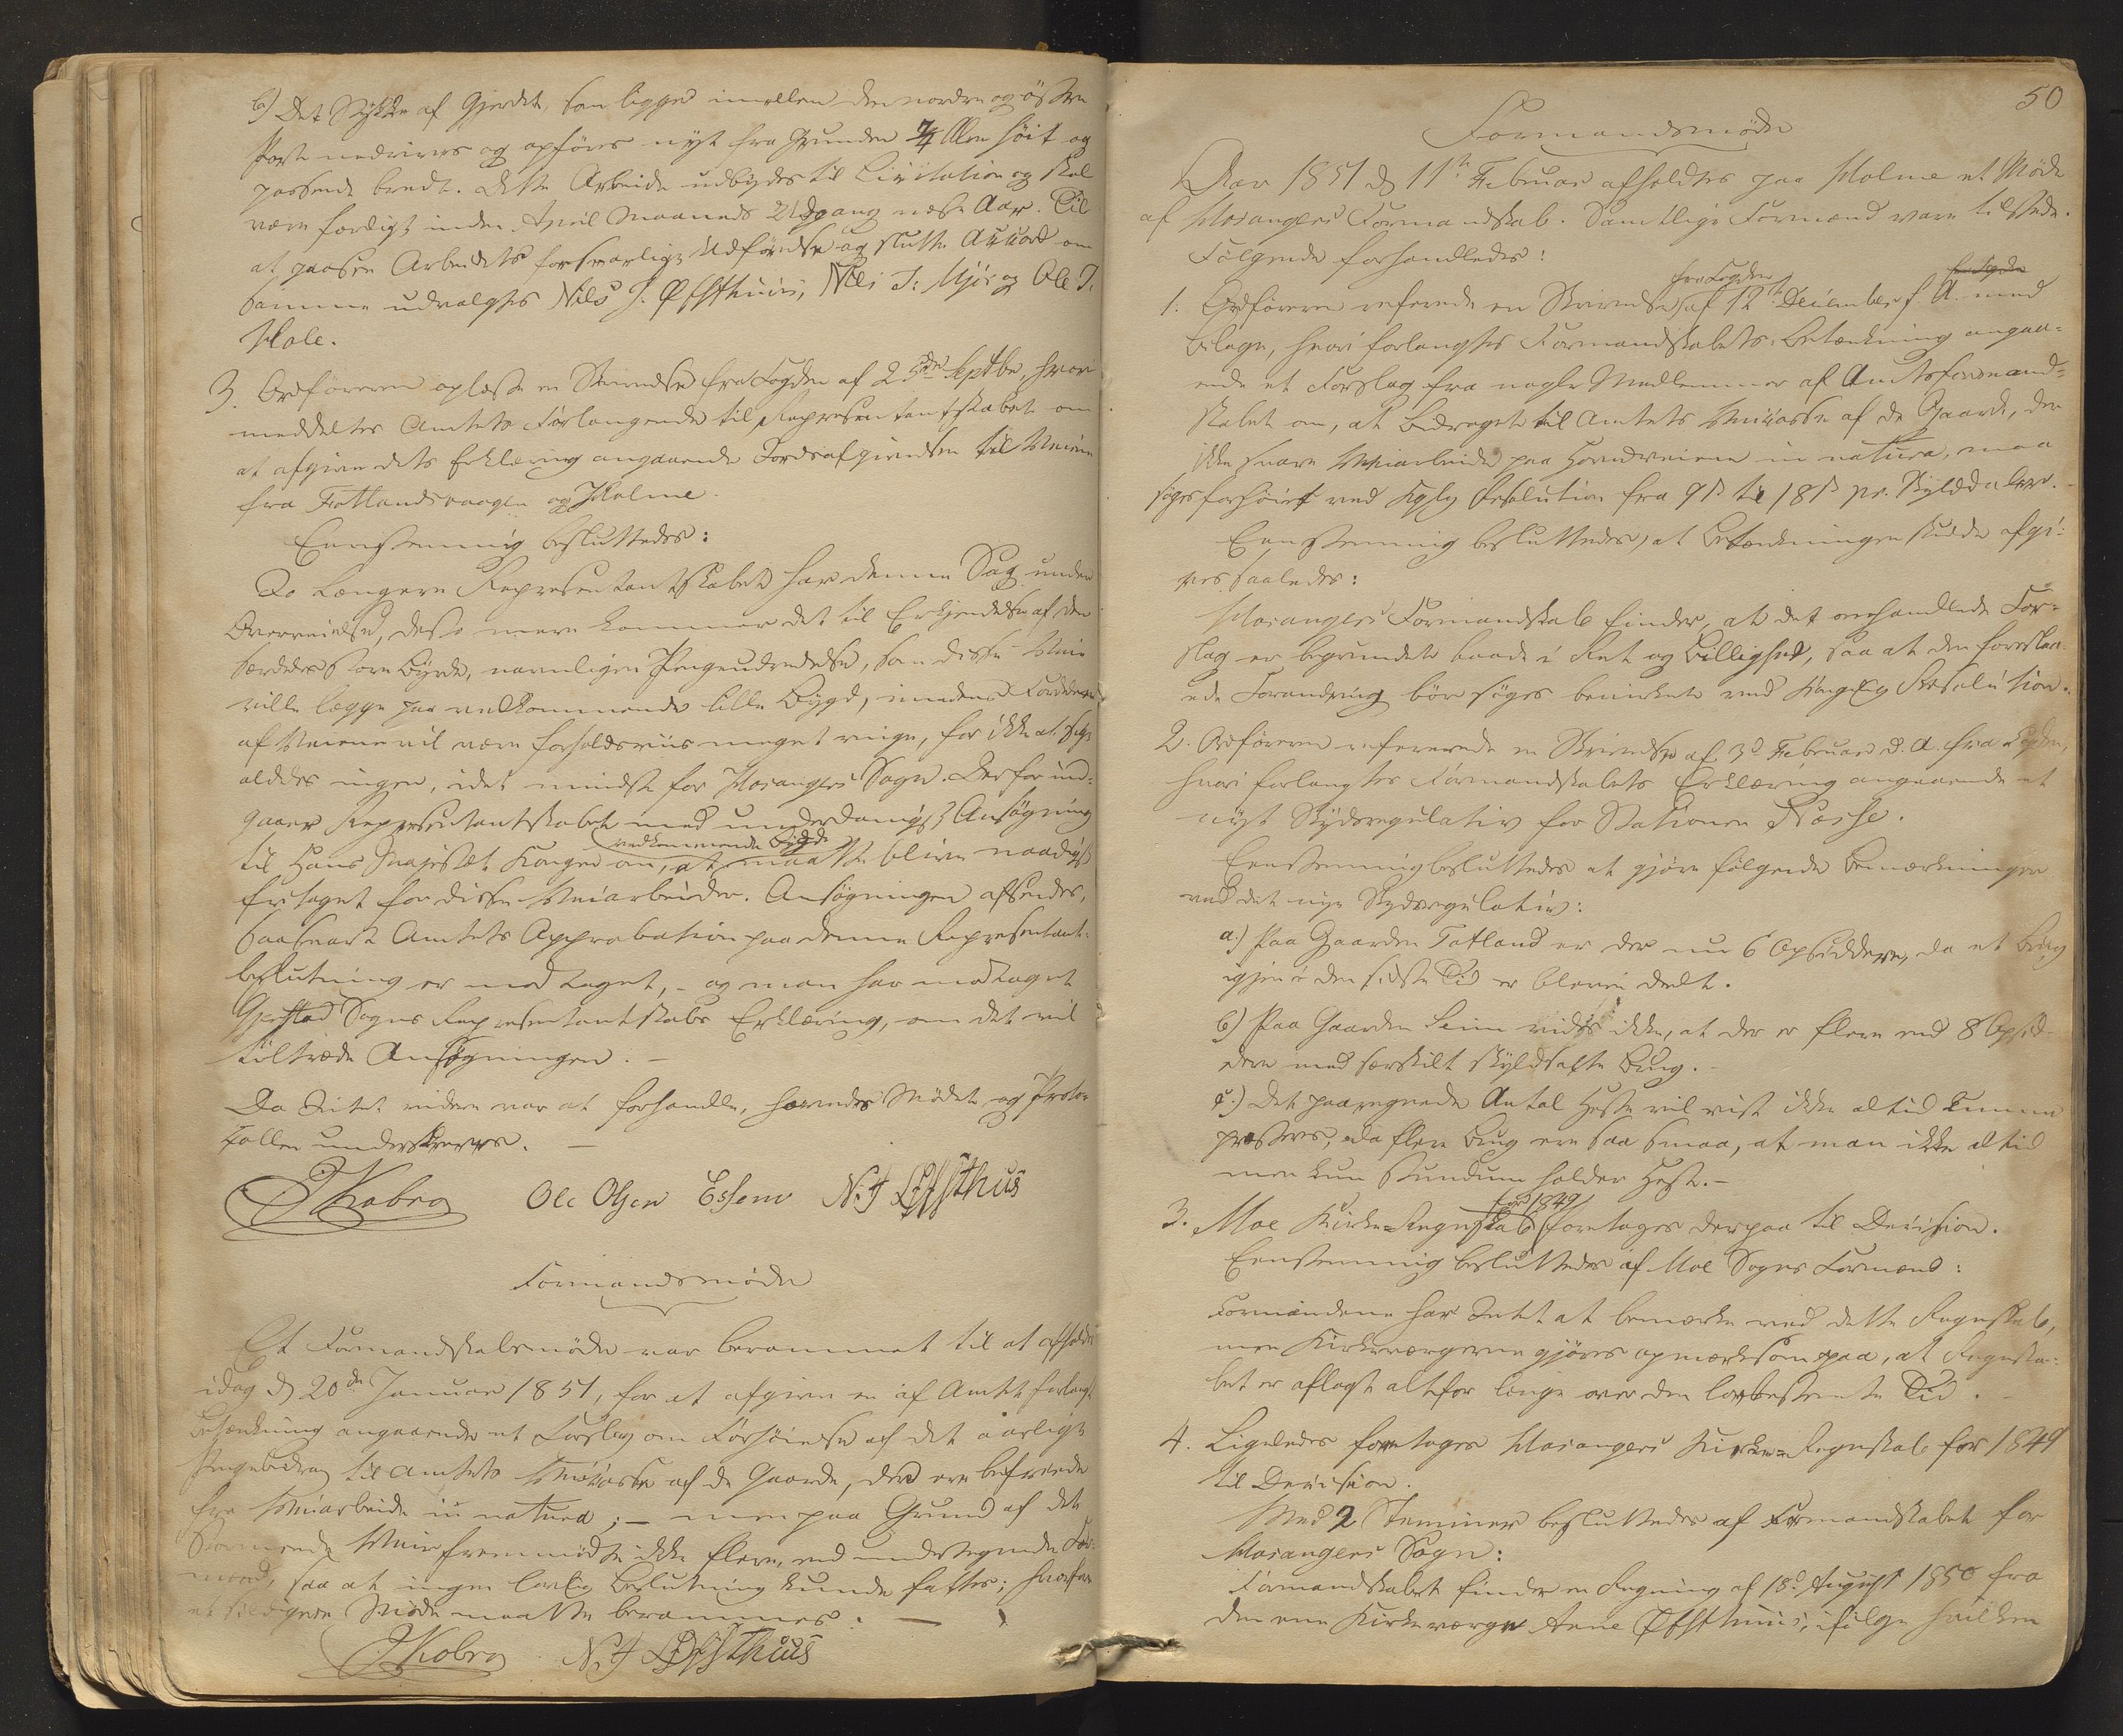 b) Det Stykke af Gjerdet, som ligger imellem den nordre og østre
Port nedrives og opføres nyt fra Grunden 7/4 Alen høit og
passende bredt. Dette Arbeide udbydes til Licitation og skal
være færdigt inden April Maaneds Udgang næste Aar. Til
at paasee Arbeidets forsvarlige Udførelse og slutte Accord om
samme udvalgtes Nils J. Øfsthuus, Nils J. Mjøs og Ole J.
Hole.
3. Ordføreren oplæste en Skrivelse fra Fogden af 25de Septbr, hvori
meddeltes Amtets Forlangende til Repræsentantskabet om
at afgive dets Erklæring angaaende Jordafgivelsen til Veiene
fra Fotlandsvaagen og Holme.
Eenstemmig besluttedes:
Jo længere Repræsentantskabet har denne Sag under
Overveielse, desto mere kommer det til Erkjendelse af den
særdeles store Byrde, navnligen Pengeudredelse, som disse Veie
ville lægge paa vedkommende lille Bygd, imedens Fordelen
af Veiene vil være forholdsviis meget ringe, for ikke at sige
aldeles ingen, idet mindste for Hosangers Sogn. Derfor ind-
gaaer Repræsentantskabet med underdanigst Ansøgning
vedkommende Bygde
til Hans Majestæt Kongen om, at maatte blive naadigst
fritaget for disse Veiarbeider. Ansøgningen afsendes,
saasnart Amtets Approbation paa denne Repræsentant-
beslutning er modtaget, - og man har modtaget
Gjerstad Sogns Repræsentantskabs Erklæring, om det vil
tiltræde Ansøgningen. -
Da Intet videre var at forhandle, hævedes Mødet og Proto-
kollen underskreves. -
J Kobro Ole Olsen Eknes N. J Øfsthus
Formandsmøde
Et Formandskabsmøde var berammet til at afholdes
idag d 20de Januar 1851, for at afgive en af Amtet forlangt
Betænkning angaaende et Forslag om Forhøielse af det aarlige
Pengebidrag til Amtets Veicasse af de Gaarde, der ere befriede
fra Veiarbeide in natura; - men paa Grund af det
stormende Veir fremmødte ikke flere, end undertegnede For-
mænd, saa at ingen lovlig Beslutning kunde fattes; hvorfor
et sildigere Møde maatte berammes. -
J Kobro N. J Øfsthuus
50
Formandsmøde
Aar 1851 d 11te Februar afholdtes paa Holme et Møde
af Hosangers Formandskab. Samtlige Formænd vare tilstede.
Følgende forhandledes:
fra Fogden
1. Ordføreren refererede en Skrivelse af 12te December f. A. med
Bilage, hvori forlangtes Formandskabets Betænkning angaa-
ende et Forslag fra nogle Medlemmer af Amtsformand-
skabet om, at Bidraget til Amtets Veicasse af de Gaarde, der
ikke svare Veiarbeide paa Hovedveiene in natura, maa
søges forhøiet ved Kgl. Resolution fra 9 ß til 18 ß pr. Skylddaler.
Eenstemmig besluttedes, at Betænkningen skulde afgi-
ves saaledes:
Hosangers Formandskab finder, at det omhandlede For-
slag er begrundet baade i Ret og Billighed, saa at den foreslaa-
ede Forandring bør søges bevirket ved Kongelig Resolution.
2. Ordføreren refererede en Skrivelse af 3d Februar d. A. fra Fogden,
hvori forlangtes Formandskabets Erklæring angaaende et
nyt Skydsregulativ for Stationen Næsse.
Eenstemmig besluttedes at gjøre følgende Bemærkninger
ved det nye Skydsregulativ:
a.) Paa Gaarden Totland er der nu 6 Opsiddere, da et Brug
igjen i den sidste Tid er bleven deelt.
b) Paa Gaarden Seim vides ikke, at der er flere end 8 Opsid-
dere med særskilt skyldsatte Brug. -
c.) Det paaregnede Antal Heste vil vist ikke altid kunne
præsteres, da flere Brug ere saa smaa, at man ikke altid
men kun stundom holder Hest. -
for 1849
3. Moe Kirke-Regnskab foretages derpaa til Decision.
Eenstemmig besluttedes af Moe Sogns Formænd:
Formændene har Intet at bemærke ved dette Regnskab,
men Kirkeværgerne gjøres opmærksom paa, at Regnska-
bet er aflagt altfor længe over den lovbestemte Tid. -
4. Ligeledes foretages Hosangers Kirke-Regnskab for 1849
til Decision.
Med 2 Stemmer besluttedes af Formandskabet for
Hosangers Sogn:
Formandskabet finder en Regning af 18d August 1850 fra
den ene Kirkeværge Arne Øfsthuus, ifølge hvilken